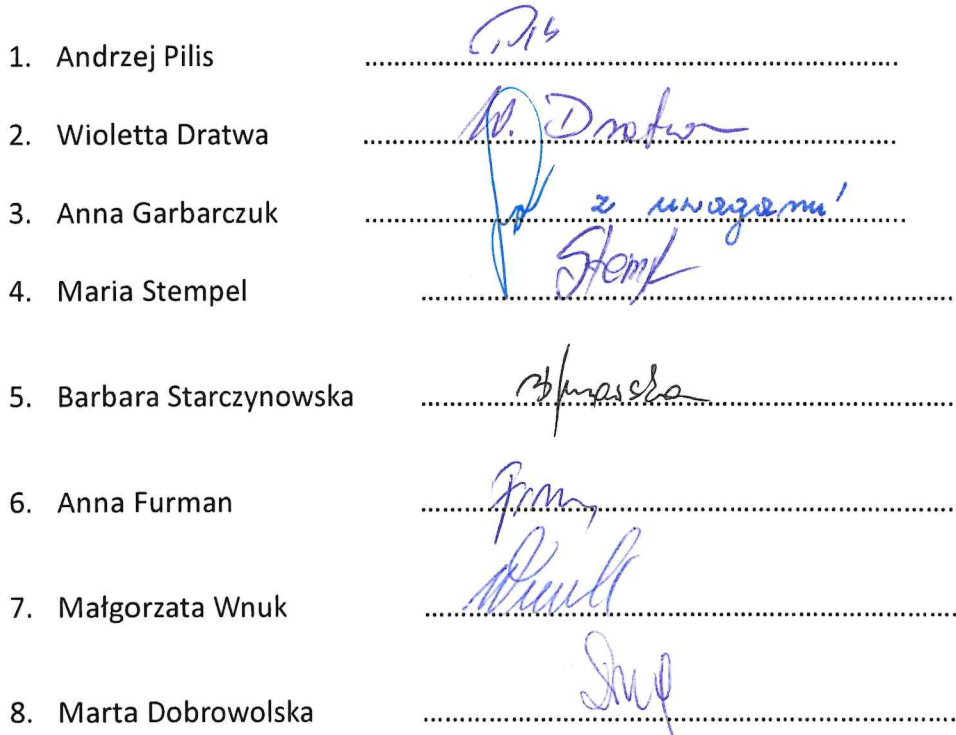 1. Andrzej Pilis
2. Wioletta Dratwa W. Dratwa
3. Anna Garbarczuk z uwagami
4. Maria Stempel Stemp
5. Barbara Starczynowska
6. Anna Furman
7. Małgorzata Wnuk Wnuk
8. Marta Dobrowolska